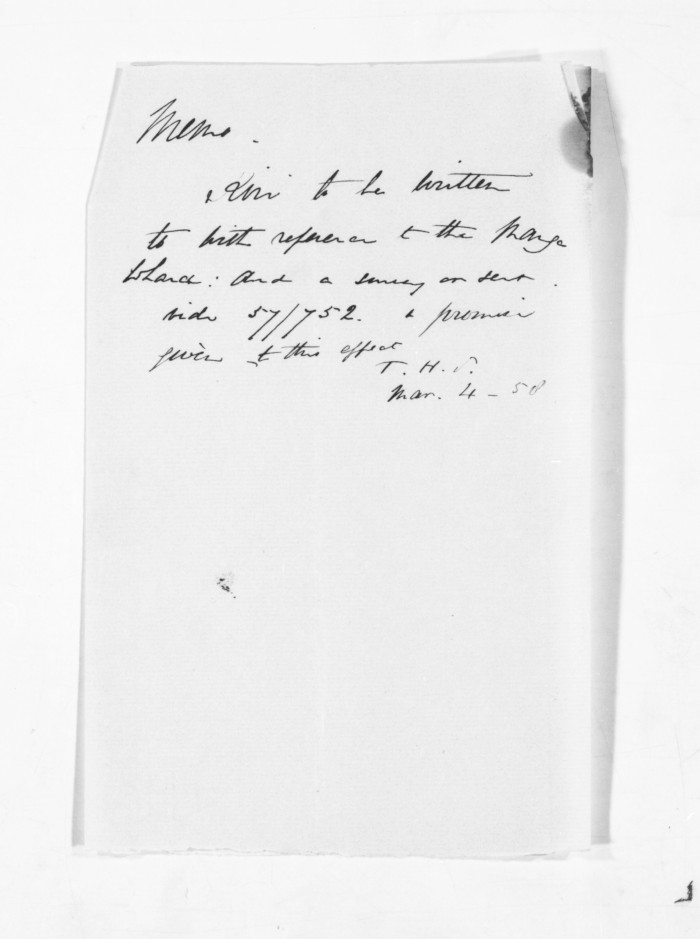 Memo.
Kivi to be written
to with reference to the
and a
vide 57/752. & promise
given to this effect
T. H. S.
Mar. 4 - 58